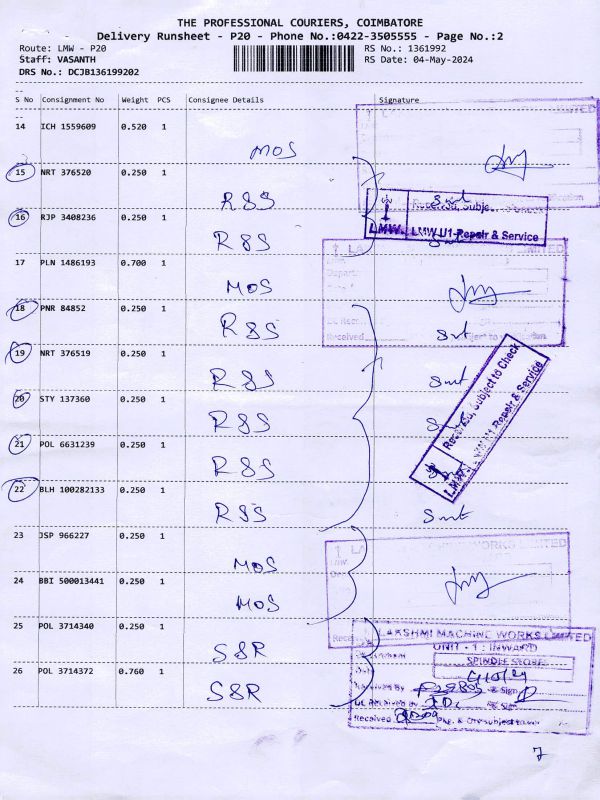 THE PROFESSIONAL COURIERS, COIMBATORE
Delivery Runsheet - P20 - Phone No.:0422-3505555 - Page No.:2
Route: LMW - P20 RS No.: 1361992
Staff: VASANTH RS Date: 04-May-2024
DRS No.: DCJB136199202
S No Consignment No Weight PCS Consignee Details Signature
14 ICH 1559609 0.520 1
MOS
15 NRT 376520 0.250 1
R&S
16 RJP 3408236 0.250 1
R&S
Received, Subje
LMW. LMW U1-Repair & Service
17 PLN 1486193 0.700 1
MOS
18 PNR 84852 0.250 1
R&S
19 NRT 376519 0.250 1
R&S
20 STY 137360 0.250 1
R&S
21 POL 6631239 0.250 1
R&S
Received, Subject to Check
LMW U1 Repair & Service
22 BLH 100282133 0.250 1
R&S
23 JSP 966227 0.250 1
MOS
24 BBI 500013441 0.250 1
MOS
25 POL 3714340 0.250 1
S&R
LAKSHMI MACHINE WORKS LIMITED
UNIT - 1 : INWARD
SPINDLE STORE
26 POL 3714372 0.760 1
S&R
Received By & Sign
DC Received By & Sign
Received Pkg. & One subject to
7